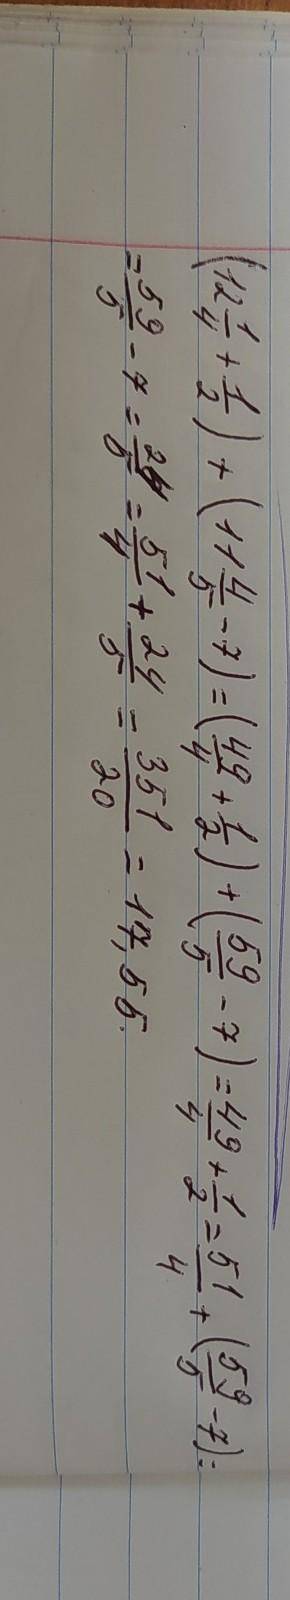 (12 1/4 + 1/2) + (11 4/5 - 7) = (49/4 + 1/2) + (59/5 - 7) = 49/4 + 1/2 = 51/4 + (59/5 - 7) =
= 59/5 - 7 = 24/5 = 51/4 + 24/5 = 351/20 = 17,55.